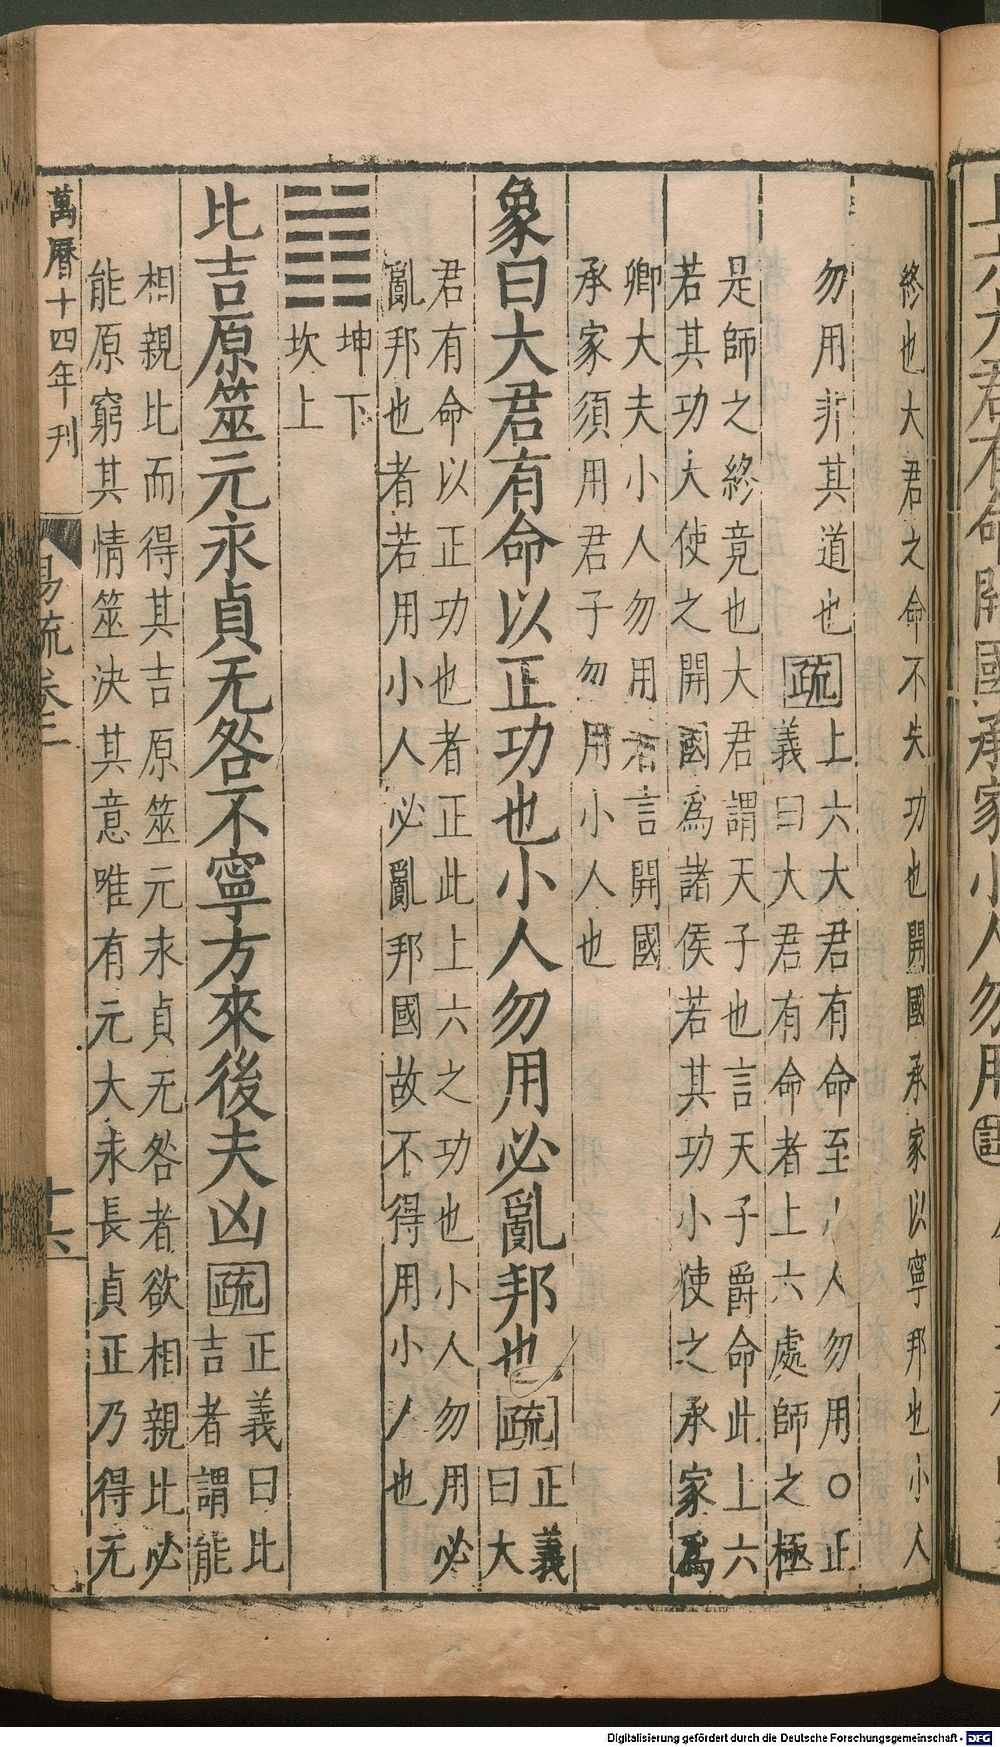 終也大君之命不失功也開國承家以寧邦也小人
勿用非其道也疏上六大君有命至小人勿用○正
義曰大君有命者上六處師之極
是師之終竟也大君謂天子也言天子爵命此上六
若其功大使之開國為諸侯若其功小使之承家為
卿大夫小人勿用者言開國
承家須用君子勿用小人也
象曰大君有命以正功也小人勿用必亂邦也疏正義
曰大
君有命以正功也者正此上六之功也小人勿用必
亂邦也者若用小人必亂邦國故不得用小人也
坤下
坎上
比吉原筮元永貞无咎不寧方來後夫凶疏正義曰比
吉者謂能
相親比而得其吉原筮元永貞无咎者欲相親比必
能原窮其情筮決其意唯有元大永長貞正乃得无
萬曆十四年刊
易疏卷二
十六
開國承家小人勿用註
Digitalisierung gefördert durch die Deutsche Forschungsgemeinschaft - DFG